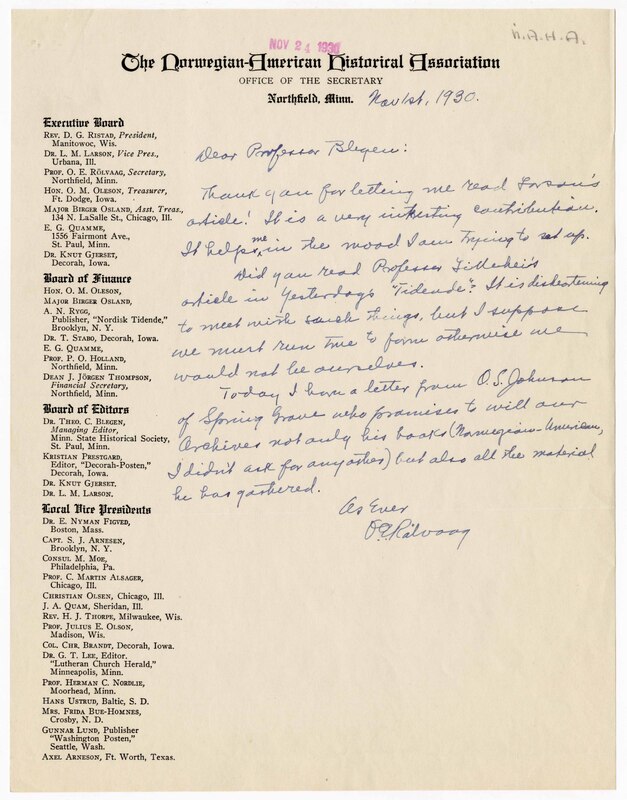 N.A.H.A.
NOV 24 1930
The Norwegian-American Historical Association
OFFICE OF THE SECRETARY
Northfield, Minn.
Nov 1st, 1930.
Executive Board
REV. D. G. RISTAD, President,
Manitowoc, Wis.
DR. L. M. LARSON, Vice Pres.,
Urbana, Ill.
PROF. O. E. RÖLVAAG, Secretary,
Northfield, Minn.
HON. O. M. OLESON, Treasurer,
Ft. Dodge, Iowa.
MAJOR BIRGER OSLAND, Asst. Treas.,
134 N. LaSalle St., Chicago, Ill.
E. G. QUAMME,
1556 Fairmont Ave.,
St. Paul, Minn.
DR. KNUT GJERSET,
Decorah, Iowa.
Board of Finance
HON. O. M. OLESON,
MAJOR BIRGER OSLAND,
A. N. RYGG,
Publisher, "Nordisk Tidende,"
Brooklyn, N. Y.
DR. T. STABO, Decorah, Iowa.
E. G. QUAMME,
PROF. P. O. HOLLAND,
Northfield, Minn.
DEAN J. JÖRGEN THOMPSON,
Financial Secretary,
Northfield, Minn.
Board of Editors
DR. THEO. C. BLEGEN,
Managing Editor,
Minn. State Historical Society,
St. Paul, Minn.
KRISTIAN PRESTGARD,
Editor, "Decorah-Posten,"
Decorah, Iowa.
DR. KNUT GJERSET.
DR. L. M. LARSON.
Local Vice Presidents
DR. E. NYMAN FIGVED,
Boston, Mass.
CAPT. S. J. ARNESEN,
Brooklyn, N. Y.
CONSUL M. MOE,
Philadelphia, Pa.
PROF. C. MARTIN ALSAGER,
Chicago, Ill.
CHRISTIAN OLSEN, Chicago, Ill.
J. A. QUAM, Sheridan, Ill.
REV. H. J. THORPE, Milwaukee, Wis.
PROF. JULIUS E. OLSON,
Madison, Wis.
COL. CHR. BRANDT, Decorah, Iowa.
DR. G. T. LEE, Editor.
"Lutheran Church Herald,"
Minneapolis, Minn.
PROF. HERMAN C. NORDLIE,
Moorhead, Minn.
HANS USTRUD, Baltic, S. D.
MRS. FRIDA BUE-HOMNES,
Crosby, N. D.
GUNNAR LUND, Publisher
"Washington Posten,"
Seattle, Wash.
AXEL ARNESON, Ft. Worth, Texas.
Dear Professor Blegen:
Thank you for letting me read
article! It is a very intersting contribution.
It helps me in the mood I am trying to set up.
Did you read Professor
article in Yesterdays "Tidende"? It is disheartening
to meet with such things, but I suppose
we must run true to form otherwise we
would not be ourselves.
Today I have a letter from O.S. Johnson
of Spring Grove who promises to will our
Archives not only his books (Norwegian-American,
I didn't ask for any other) but also all the material
he has gathered.
As Ever
O E Rölvaag